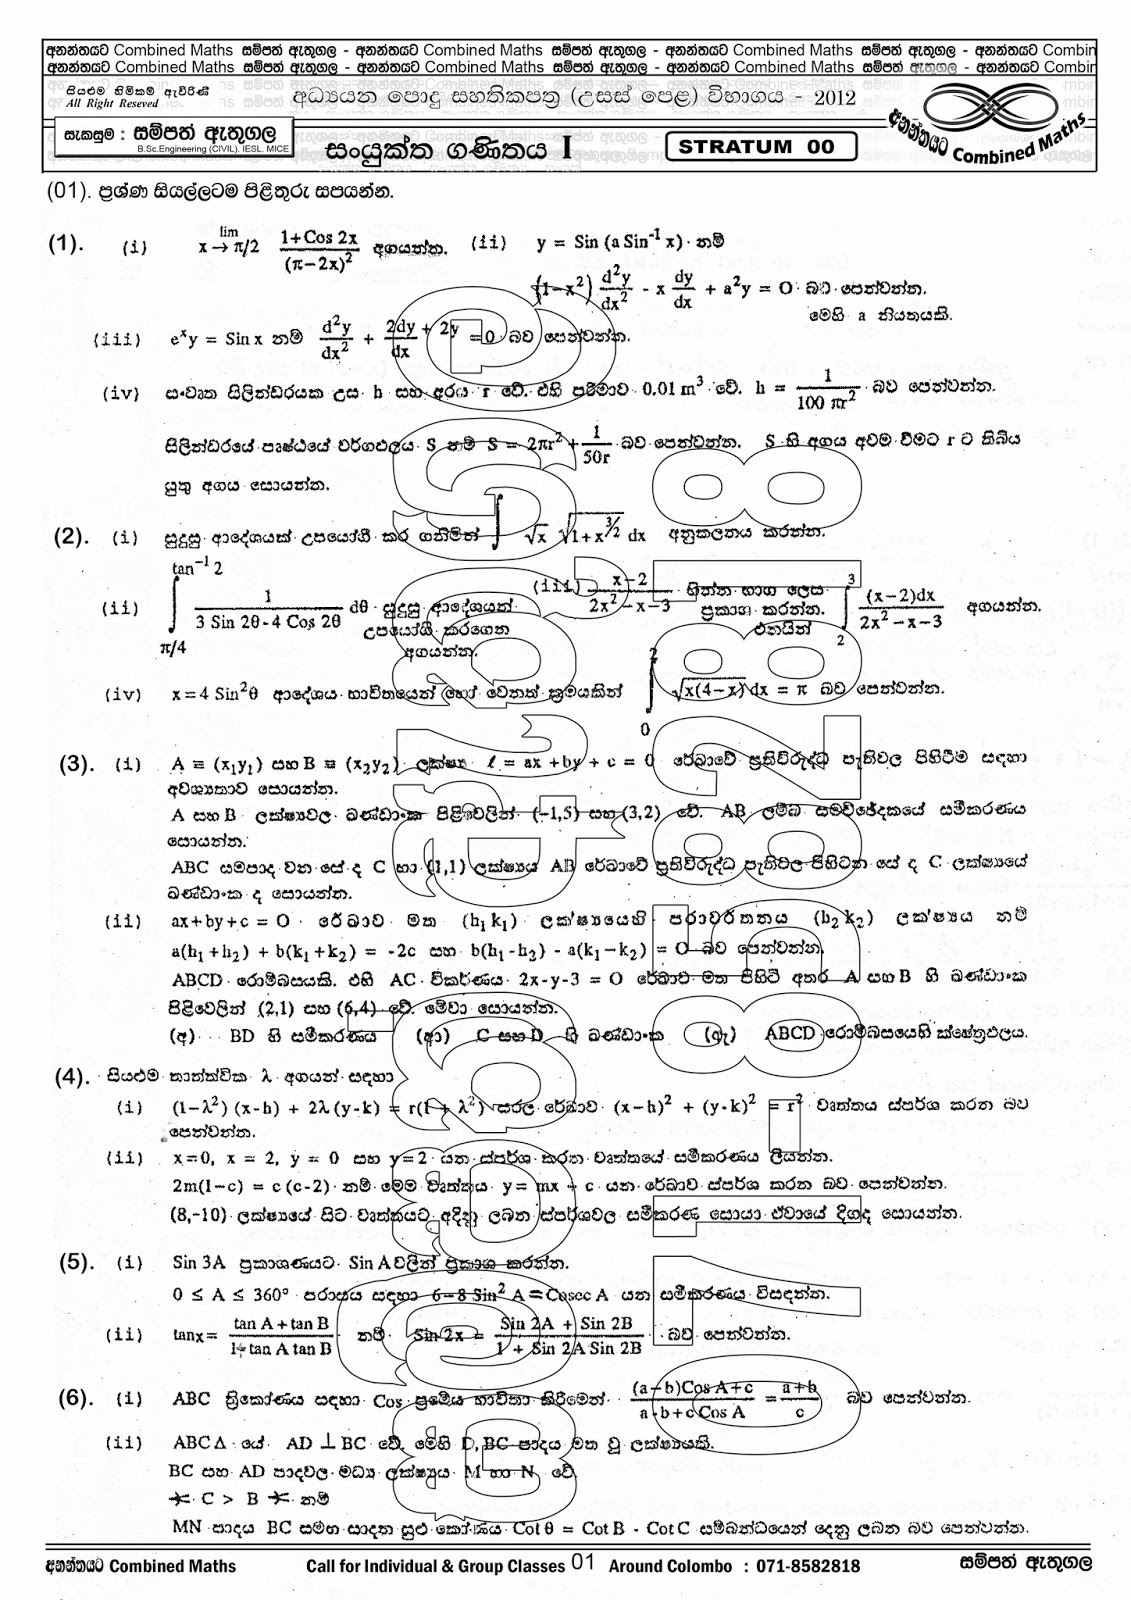 අනන්තයට Combined Maths සම්පත් ඇතුගල - අනන්තයට Combined Maths සම්පත් ඇතුගල - අනන්තයට Combined Maths සම්පත් ඇතුගල - අනන්තයට Combin
අනන්තයට Combined Maths සම්පත් ඇතුගල - අනන්තයට Combined Maths සම්පත් ඇතුගල - අනන්තයට Combined Maths සම්පත් ඇතුගල - අනන්තයට Combin
සියළුම හිමිකම් ඇවිරිණි
All Right Reseved
අධ්‍යයන පොදු සහතිකපත්‍ර (උසස් පෙළ) විභාගය - 2012
සැකසුම : සම්පත් ඇතුගල
B.Sc.Engineering (CIVIL), IESL. MICE
සංයුක්ත ගණිතය I
STRATUM 00
අනන්තයට Combined Maths
(01). ප්‍රශ්ණ සියල්ලටම පිළිතුරු සපයන්න.
(1). (i) lim x→π/2 (1+Cos 2x)/(π−2x)² අගයන්න. (ii) y = Sin (a Sin⁻¹ x) නම්
(1−x²) d²y/dx² - x dy/dx + a²y = O බව පෙන්වන්න.
මෙහි a නියතයකි.
(iii) eˣy = Sin x නම් d²y/dx² + 2dy/dx + 2y = 0 බව පෙන්වන්න.
(iv) සංවෘත සිලින්ඩරයක උස h සහ අරය r වේ. එහි පරිමාව 0.01 m³ වේ. h = 1/(100 πr²) බව පෙන්වන්න.
සිලින්ඩරයේ පෘෂ්ඨයේ වර්ගඵලය S නම් S = 2πr² + 1/50r බව පෙන්වන්න. S හි අගය අවම වීමට r ට තිබිය
යුතු අගය සොයන්න.
(2). (i) සුදුසු ආදේශයක් උපයෝගී කර ගනිමින් ∫ √x √(1+x^(3/2)) dx අනුකලනය කරන්න.
(ii) ∫_(π/4)^(tan⁻¹ 2) 1/(3 Sin 2θ-4 Cos 2θ) dθ සුදුසු ආදේශයක් උපයෝගී කරගෙන අගයන්න. (iii) (x−2)/(2x²−x−3) භින්න භාග ලෙස ප්‍රකාශ කරන්න. එනයින් ∫_2^3 (x−2)dx/(2x²−x−3) අගයන්න.
(iv) x=4 Sin²θ ආදේශය භාවිතයෙන් හෝ වෙනත් ක්‍රමයකින් ∫_0^2 √(x(4−x)) dx = π බව පෙන්වන්න.
(3). (i) A ≡ (x₁y₁) සහ B ≡ (x₂y₂) ලක්ෂ්‍ය ℓ = ax + by + c = 0 රේඛාවේ ප්‍රතිවිරුද්ධ පැතිවල පිහිටීම සඳහා
අවශ්‍යතාව සොයන්න.
A සහ B ලක්ෂ්‍යවල ඛණ්ඩාංක පිළිවෙලින් (−1,5) සහ (3,2) වේ. AB ලම්බ සමච්ඡේදකයේ සමීකරණය
සොයන්න.
ABC සමපාද වන සේ ද C හා (1,1) ලක්ෂ්‍යය AB රේඛාවේ ප්‍රතිවිරුද්ධ පැතිවල පිහිටන සේ ද C ලක්ෂ්‍යයේ
ඛණ්ඩාංක ද සොයන්න.
(ii) ax+by+c = O රේඛාව මත (h₁ k₁) ලක්ෂ්‍යයෙහි පරාවර්තනය (h₂ k₂) ලක්ෂ්‍යය නම්
a(h₁+h₂) + b(k₁+k₂) = -2c සහ b(h₁-h₂) - a(k₁−k₂) = O බව පෙන්වන්න.
ABCD රොම්බසයකි. එහි AC විකර්ණය 2x-y-3 = O රේඛාව මත පිහිටි අතර A සහ B හි ඛණ්ඩාංක
පිළිවෙලින් (2,1) සහ (6,4) වේ. මේවා සොයන්න.
(අ) BD හි සමීකරණය (ආ) C සහ D හි ඛණ්ඩාංක (ඇ) ABCD රොම්බසයෙහි ක්ෂේත්‍රඵලය.
(4). සියළුම තාත්ත්වික λ අගයන් සඳහා
(i) (1−λ²) (x-h) + 2λ (y-k) = r(1 + λ²) සරල රේඛාව (x−h)² + (y-k)² = r² වෘත්තය ස්පර්ශ කරන බව
පෙන්වන්න.
(ii) x=0, x = 2, y = 0 සහ y=2 යන ස්පර්ශ කරන වෘත්තයේ සමීකරණය ලියන්න.
2m(1−c) = c (c-2) නම් මෙම වෘත්තය y= mx + c යන රේඛාව ස්පර්ශ කරන බව පෙන්වන්න.
(8,-10) ලක්ෂ්‍යයේ සිට වෘත්තයට අදිනු ලබන ස්පර්ශවල සමීකරණ සොයා ඒවායේ දිගද සොයන්න.
(5). (i) Sin 3A ප්‍රකාශණයට Sin A වලින් ප්‍රකාශ කරන්න.
0 ≤ A ≤ 360° පරාසය සඳහා 6−8 Sin² A = Cosec A යන සමීකරණය විසඳන්න.
(ii) tanx= (tan A + tan B)/(1+tan A tan B) නම් Sin 2x = (Sin 2A + Sin 2B)/(1 + Sin 2A Sin 2B) බව පෙන්වන්න.
(6). (i) ABC ත්‍රිකෝණය සඳහා Cos ප්‍රමේය භාවිතා කිරීමෙන් ((a−b)Cos A+c)/(a-b+c Cos A) = (a+b)/c බව පෙන්වන්න.
(ii) ABC Δ යේ AD ⊥ BC වේ. මෙහි D, BC පාදය මත වූ ලක්ෂ්‍යයකි.
BC සහ AD පාදවල මධ්‍ය ලක්ෂ්‍යය M හා N වේ
C > B නම්
MN පාදය BC සමඟ සාදන සුළු කෝණය Cot θ = Cot B - Cot C සම්බන්ධයෙන් දෙනු ලබන බව පෙන්වන්න.
අනන්තයට Combined Maths Call for Individual & Group Classes 01 Around Colombo : 071-8582818 සම්පත් ඇතුගල